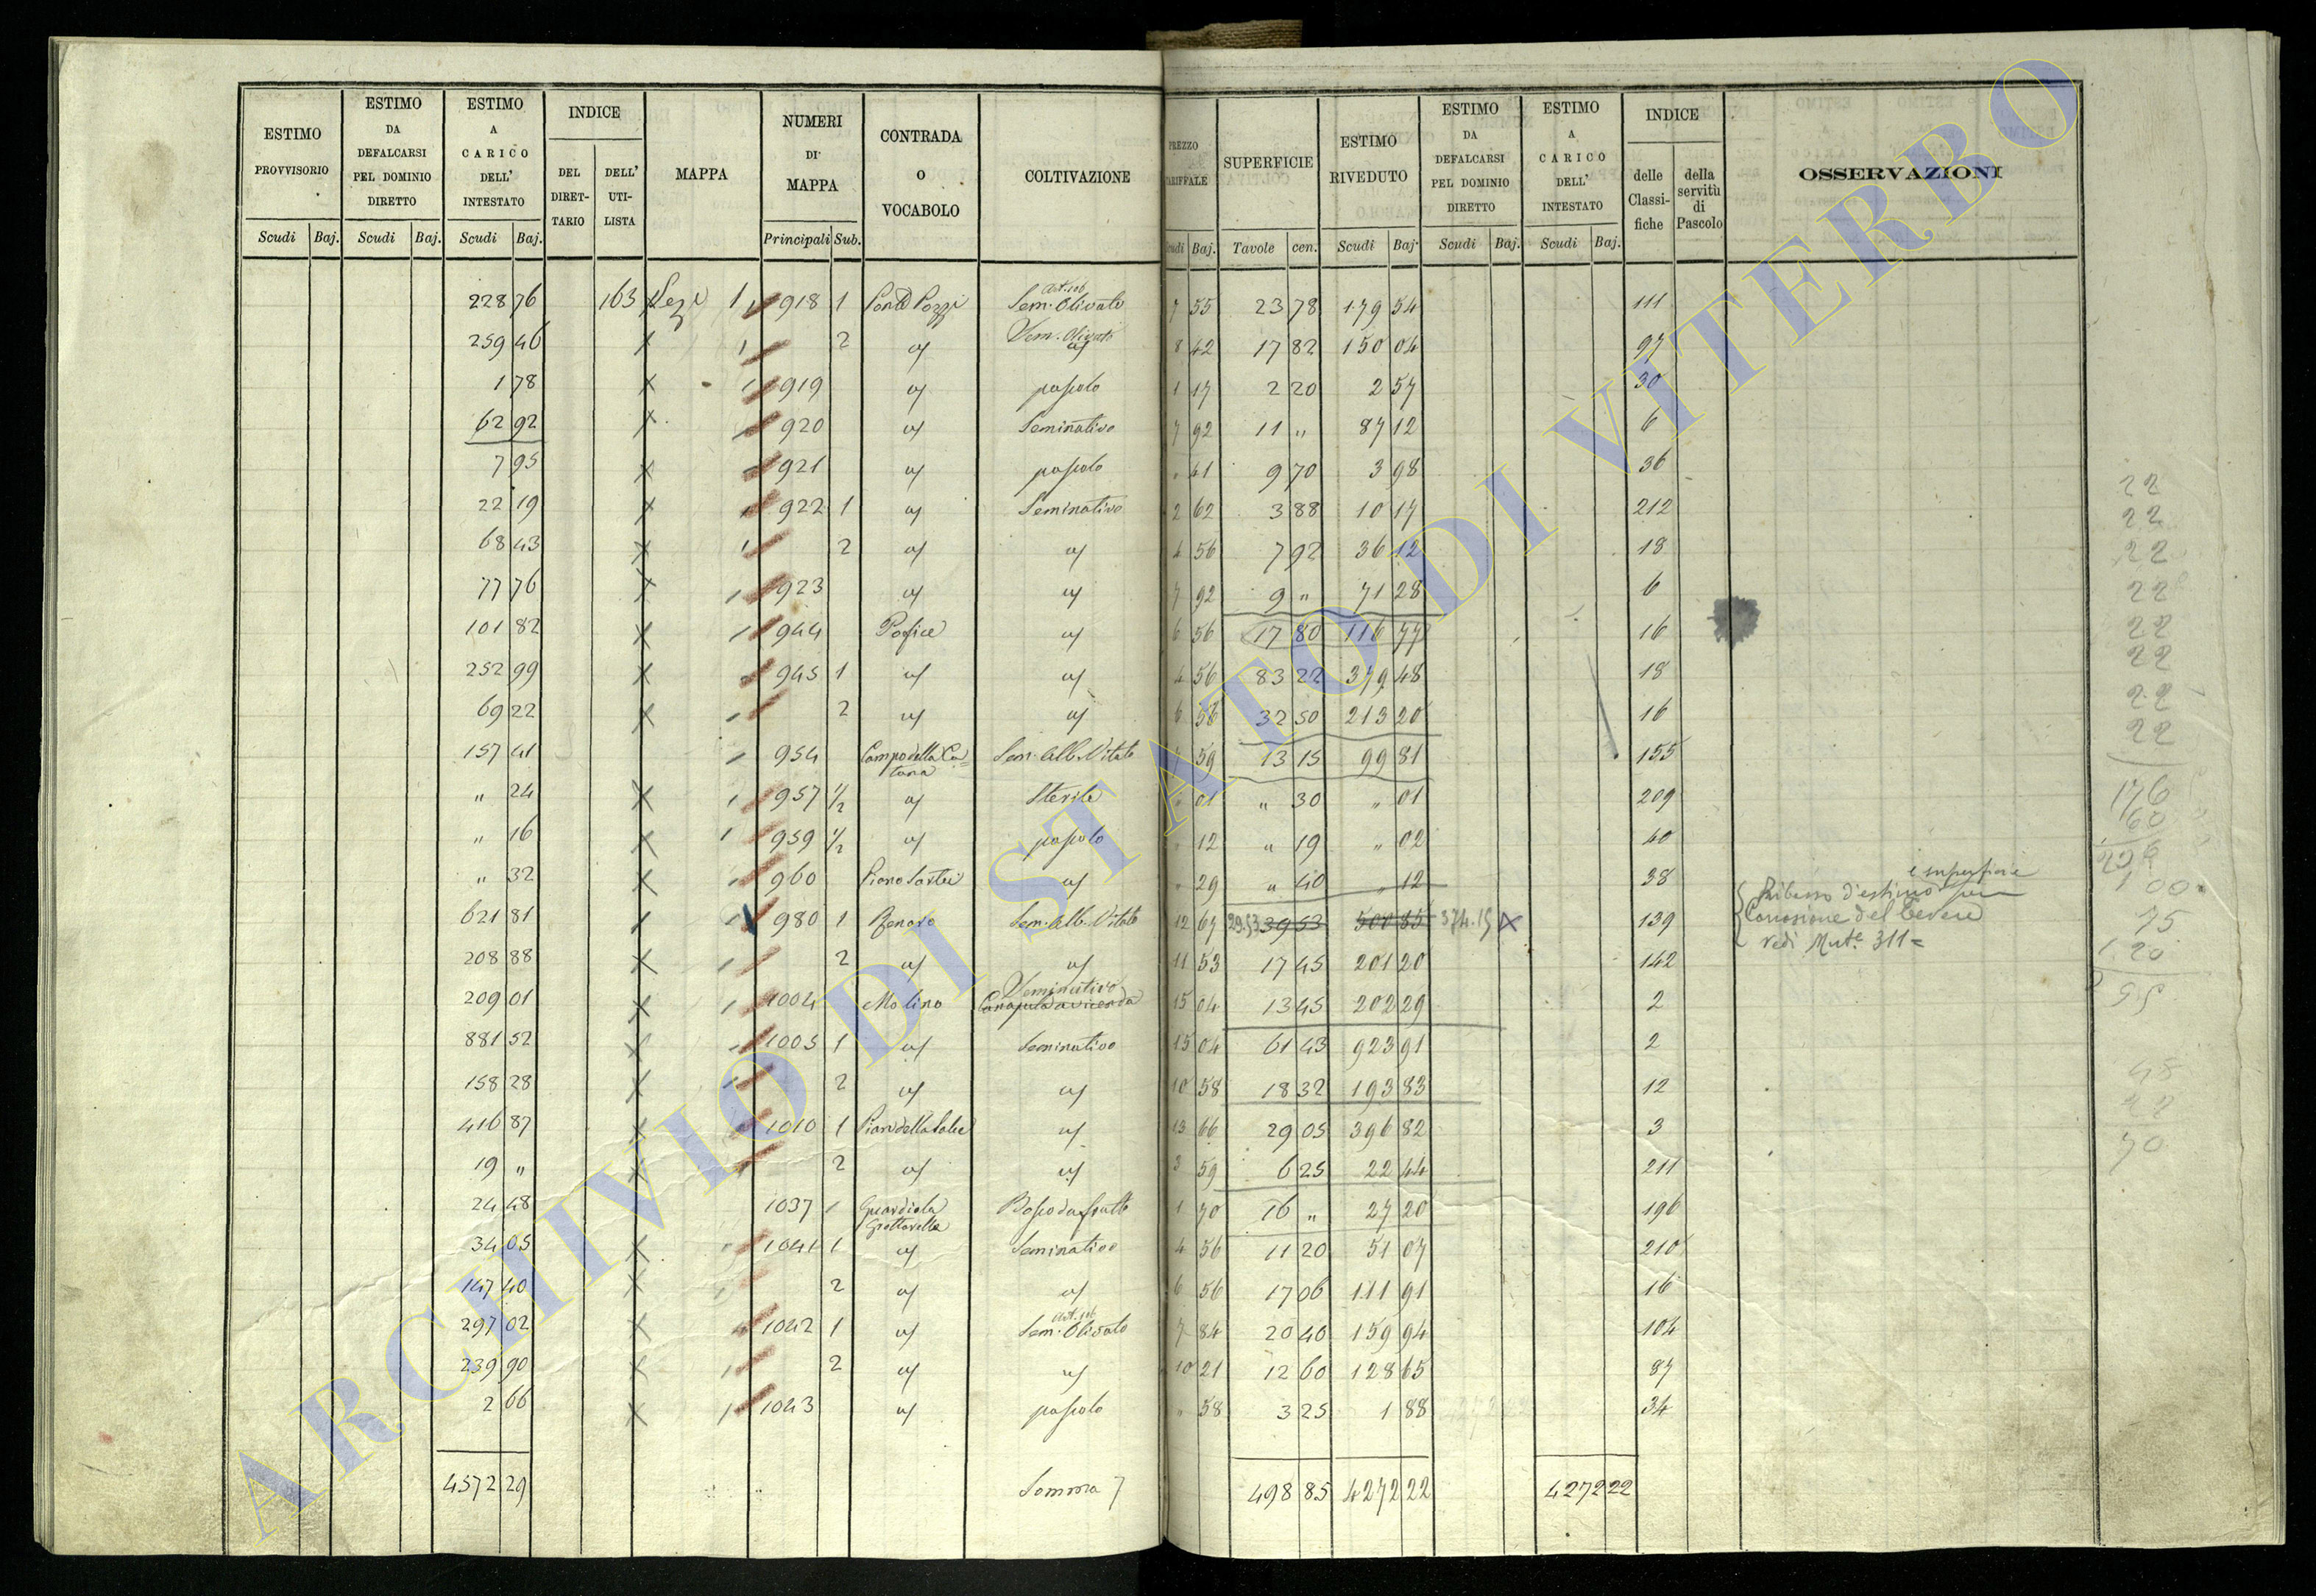 ESTIMO PROVVISORIO | ESTIMO DA DEFALCARSI PEL DOMINIO DIRETTO | ESTIMO A CARICO DELL' INTESTATO | INDICE DEL DIRET-TARIO | DELL' UTI-LISTA | MAPPA | NUMERI DI MAPPA | CONTRADA O VOCABOLO | COLTIVAZIONE | PREZZO TARIFFALE | SUPERFICIE | ESTIMO RIVEDUTO | ESTIMO DA DEFALCARSI PEL DOMINIO DIRETTO | ESTIMO A CARICO DELL' INTESTATO | INDICE delle Classi-fiche | della servitù di Pascolo | OSSERVAZIONI
Scudi Baj. Scudi Baj. Scudi Baj. Principali Sub. Scudi Baj. Tavole cen. Scudi Baj. Scudi Baj. Scudi Baj.
Art. 106
228 76 163 1 918 1 Sem. Olivato 7 55 23 78 179 54 111
Sem. Olivato
259 46 1 2 8 42 17 82 150 04 97
1 78 1 919 pascolo 1 17 2 20 2 57 30
62 92 1 920 Seminativo 7 92 11 " 87 12 6
7 95 1 921 pascolo " 41 9 70 3 98 36
22 19 1 922 1 Seminativo 2 62 3 88 10 17 212
68 43 1 2 4 56 7 92 36 12 18
77 76 1 923 7 92 9 " 71 28 6
101 82 1 944 6 56 17 80 116 77 16
252 99 945 1 4 56 83 22 379 48 18
69 22 1 2 6 56 32 50 213 20 16
157 41 1 954 Campo della Ca= Sem. Alb. Vitato 7 59 13 15 99 81 155
tana
" 24 1 957 1/2 Sterile " 01 " 30 " 01 209
" 16 1 959 1/2 pascolo " 12 " 19 " 02 40
" 32 1 960 " 29 " 40 " 12 38
e superficie
Ribasso d'estimo per
621 81 1 980 1 Renaro Sem. Alb. Vitato 12 67 29.53 39 53 500 85 374.15 139 Corrosione del Tevere
vedi Mut.e 311=
208 88 1 2 11 53 17 45 201 20 142
Seminativo
209 01 1 1004 Molino Canapula a vicenda 15 04 13 45 202 29 2
881 52 1005 1 Seminativo 15 04 61 43 923 91 2
158 28 1 2 10 58 18 32 193 83 12
416 87 1010 1 13 66 29 05 396 82 3
19 " 1 2 3 59 6 25 22 44 211
24 48 1037 1 Guardiola Bosco da frutto 1 70 16 " 27 20 196
Grottarella
34 05 1041 1 Seminativo 4 56 11 20 51 07 210
147 40 2 6 56 17 06 111 91 16
Art. 106
297 02 1042 1 Sem. Olivato 7 84 20 40 159 94 104
239 90 1 2 10 21 12 60 128 65 87
2 66 1 1043 pascolo " 58 3 25 1 88 34
4572 29 Somma 498 85 4272 22 4272 22
22
22
22
22
22
22
22
22
176
60
1 00
75
1.20
48
22
70
ARCHIVIO DI STATO DI VITERBO